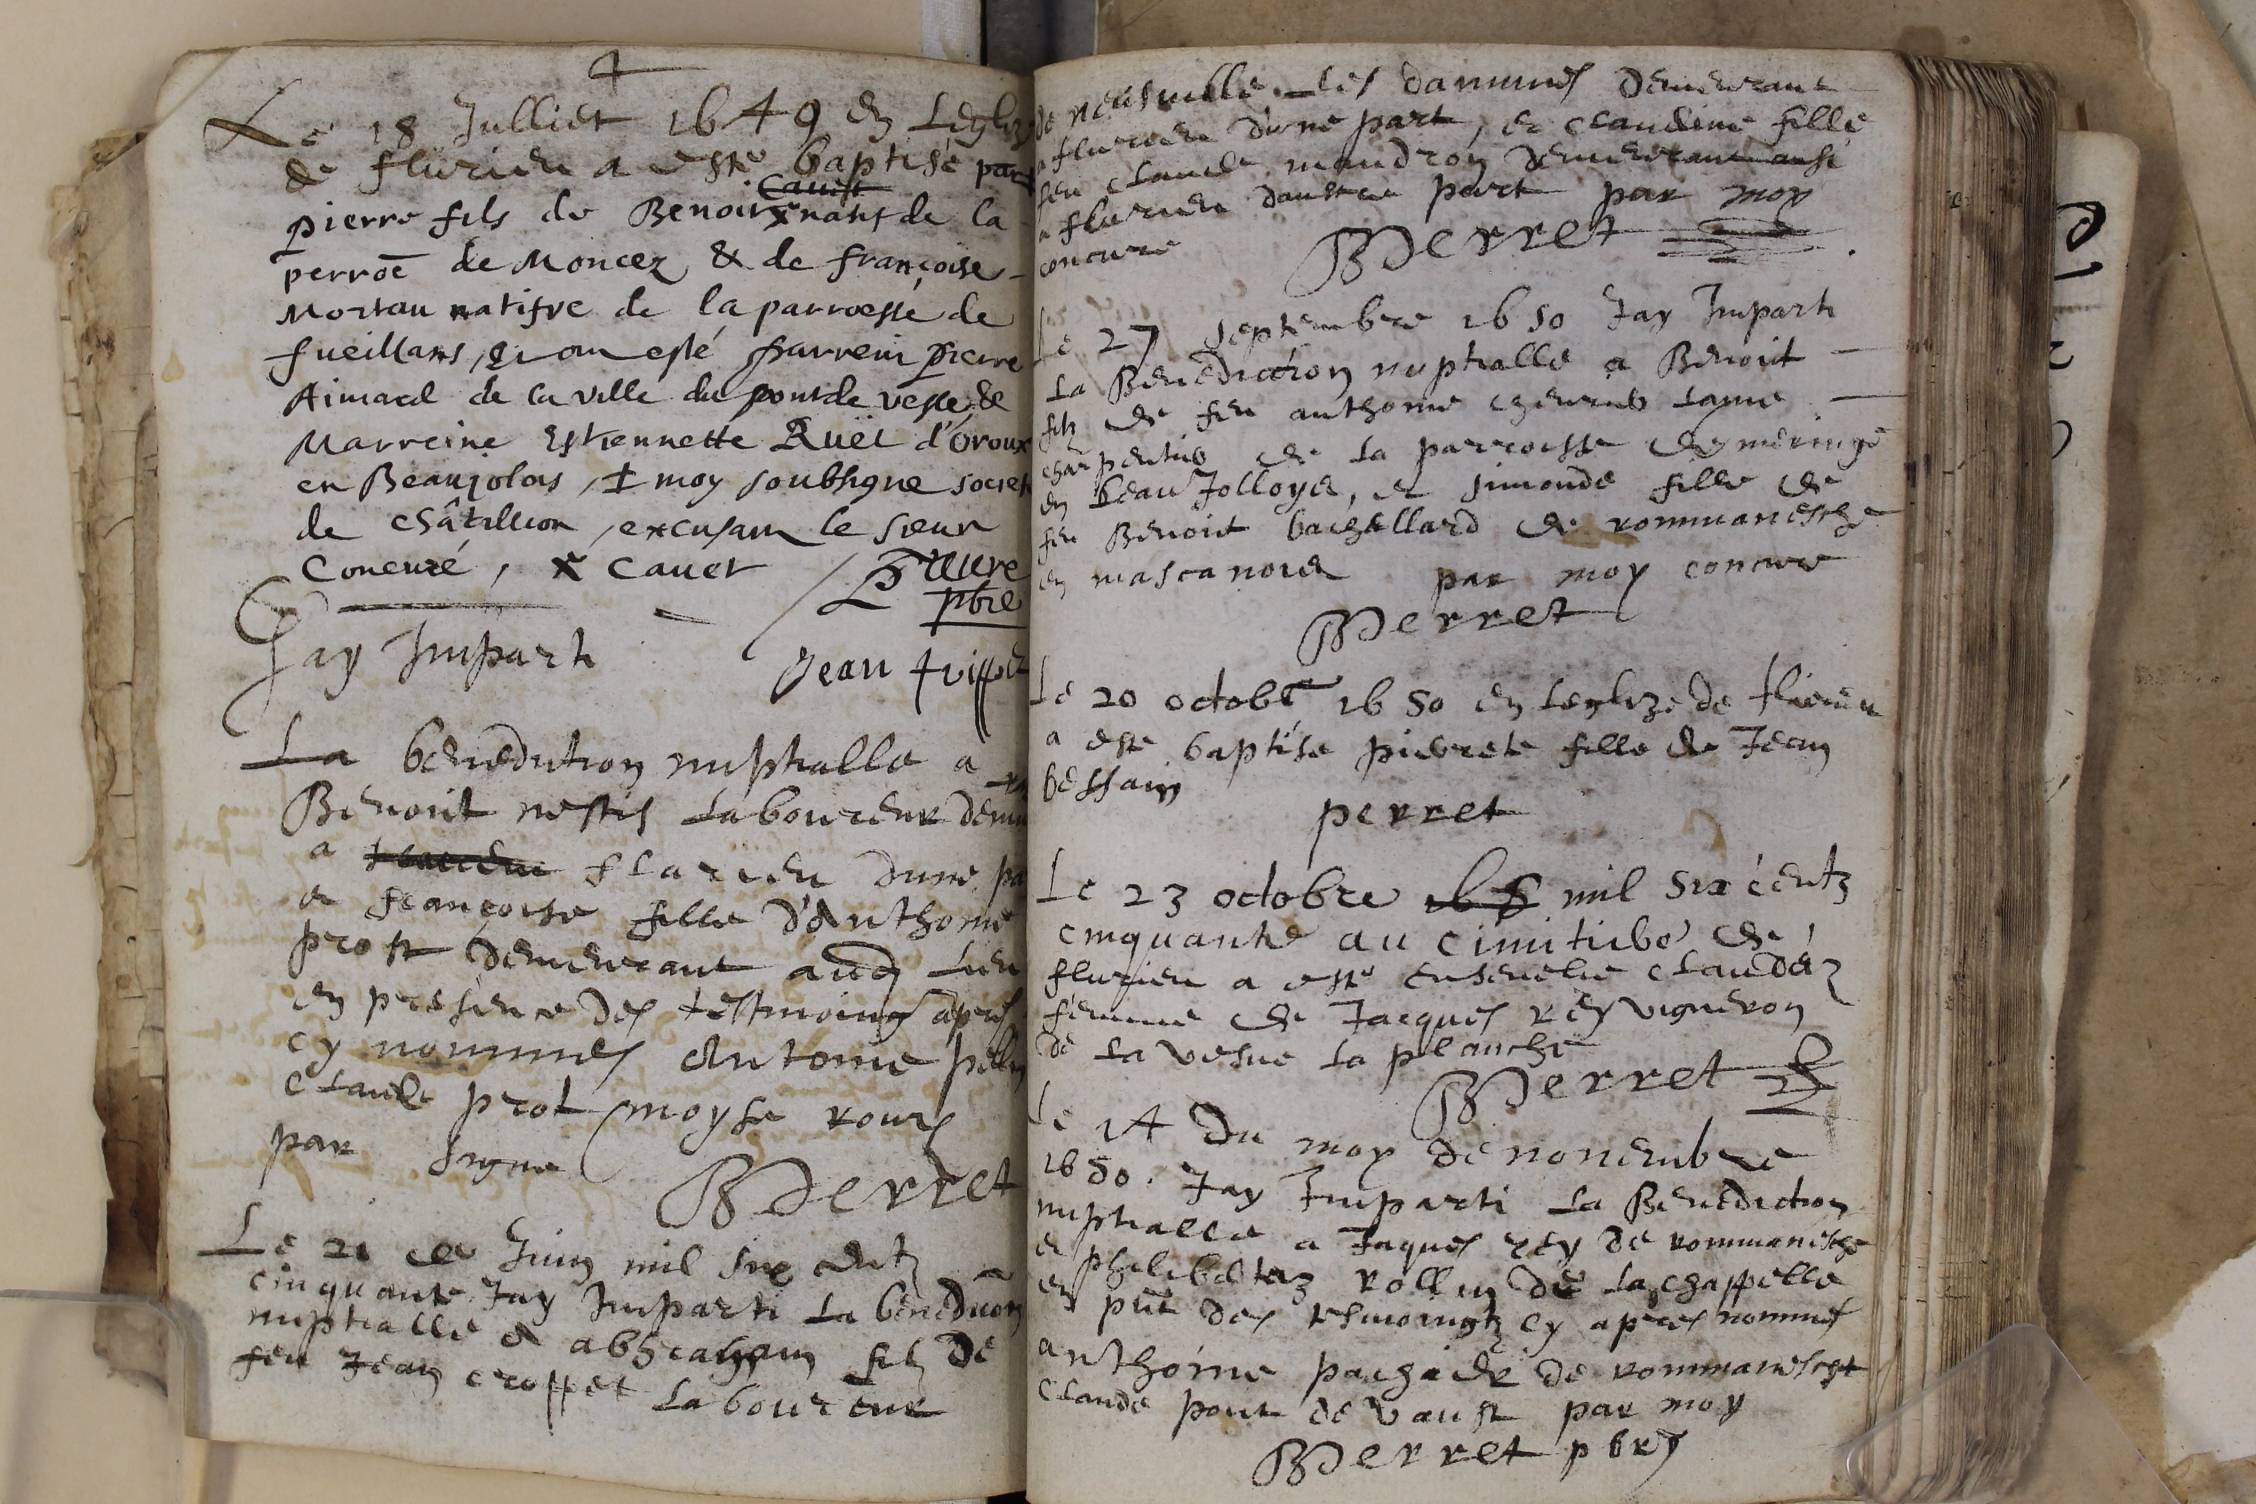 Le 18 Julliet 1649 en Leglize
de flurieu a este baptisé par
pierre fils de Benoit x natif de la
Cauet
perroē de Moncez & de françoise
Mortau natifve de la parroesse de
fueillans, & ont esté parrein pierre
Aimard de la ville du pontdevesle, &
Marreine Estiennette Ruet d'Oroux
en Beaujolois, & moy soubsigne
de châtillion, excusant le sieur
Concuré, x Cauet
pbre
Jay Imparti
Jean
La benediction nuptialle a
Benoit nestis Laboureur
a flurieu dune
et françoise fille d'Anthoine
prost demeurant audt Lieu
en presence des testmoings apres
cy nommes Antoine
Claude prot moyse rours
par signe
Perret
Le 21 de Juing mil six centz
cinquante Jay Imparti La benedition
nuptialle a abraham filz de
feu Jean croppet Laboureur
de neufville les dammes demeurant
a flurieu d'une part, et claudine fille
feu claude mandron demeurant ausi
a flurieu daultre part par moy
concure Perret
Le 27 septembre 1650 Jay Imparti
La Benediction nuptialle a Benoit
filz de feu anthoine
charpentier de la parroisse de meringe
en beauJolloys, et simonde fille de
feu Benoit bachellard de rommanesche
en masconois par moy concure
Perret
Le 20 octobe 1650 en Leglize de flurieu
a este baptise pierrete fille de Jean
bessain
perret
Le 23 octobre 165 mil six centz
cinquante au cimitiere de
flurieu a este ensevelie claudaz
femme de Jacques rey vigneron
de La vesve La planche
Perret
Le 14 du moy de novembre
1650. Jay Imparti La Benediction
nuptialle a Jaques rey de rommanesche
et philibertaz rollin de La chappelle
en pnt des tesmoingtz cy apres nommes
anthoine de rommanesche
Claude pont de vaust par moy
Perret pbre